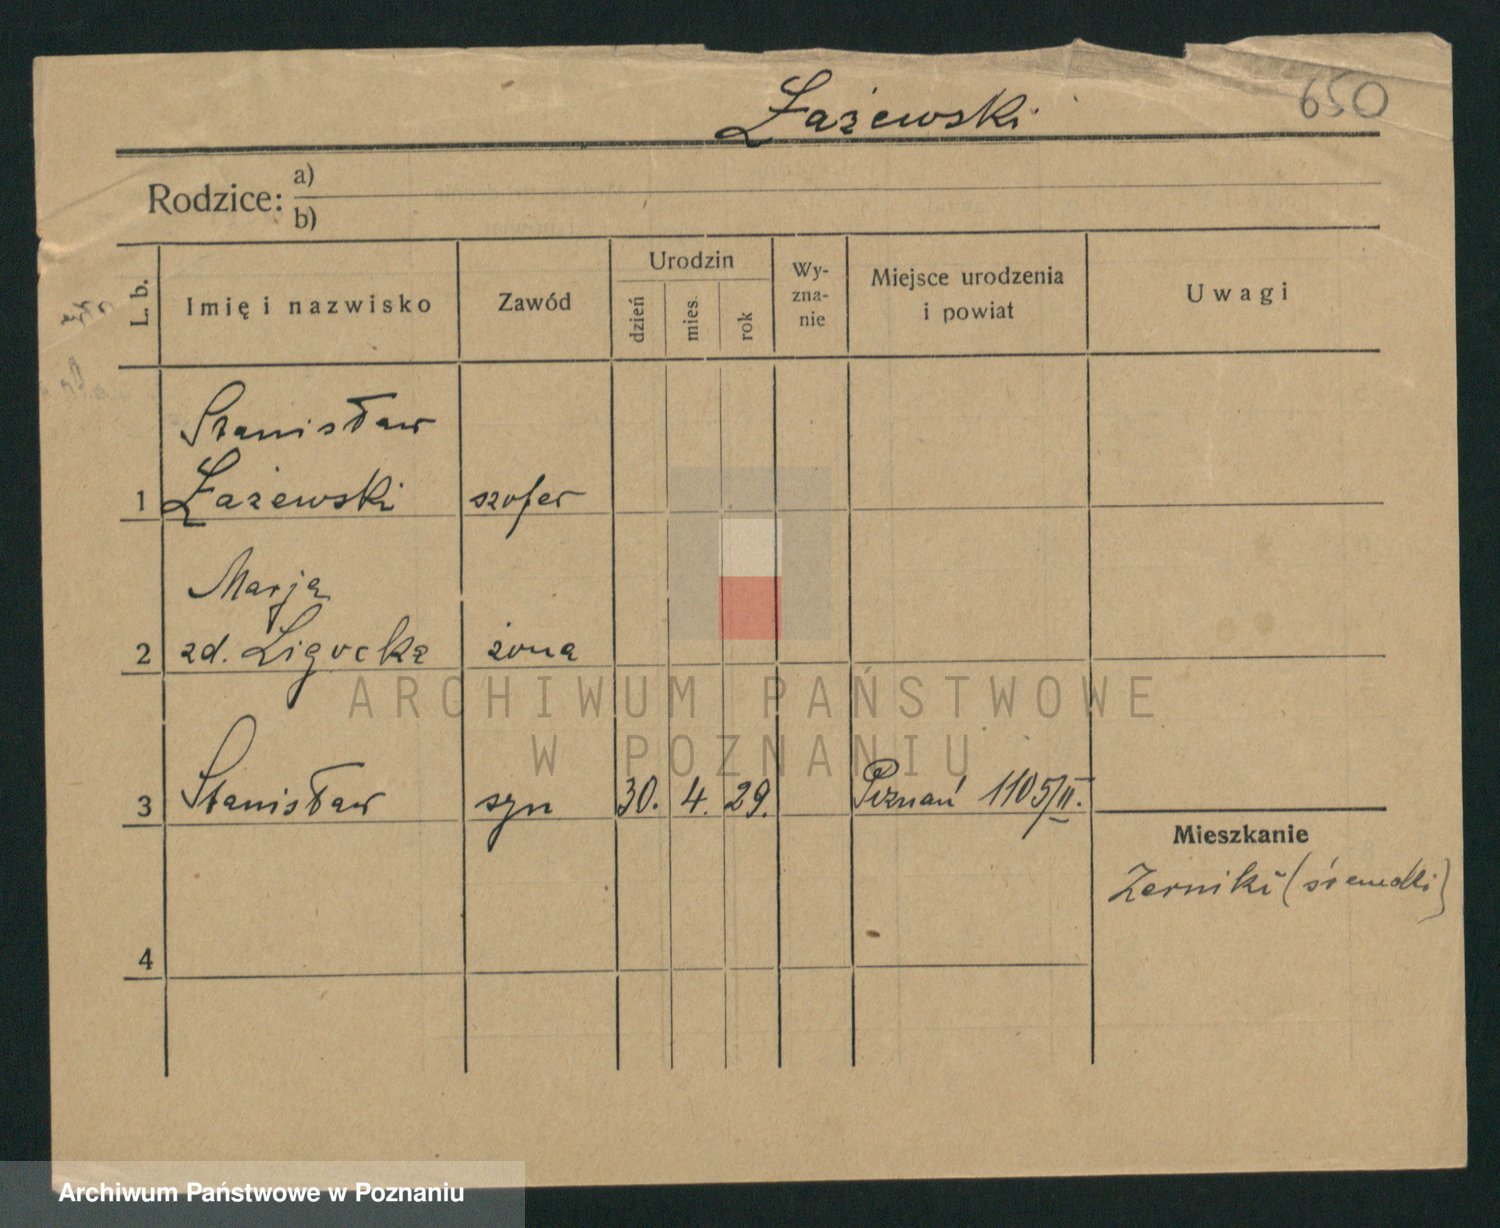 Łażewski
650
Rodzice: a)
b)
L. b.
Imię i nazwisko
Zawód
Urodzin
dzień
mies.
rok
Wy-
zna-
nie
Miejsce urodzenia
i powiat
Uwagi
Stanisław
1 Łażewski szofer
Marja
2 zd. Ligocka żona
3 Stanisław syn 30. 4. 29. Poznań 1105/II.
Mieszkanie
Żerniki (śremski)
4
ARCHIWUM PAŃSTWOWE
W POZNANIU
Archiwum Państwowe w Poznaniu